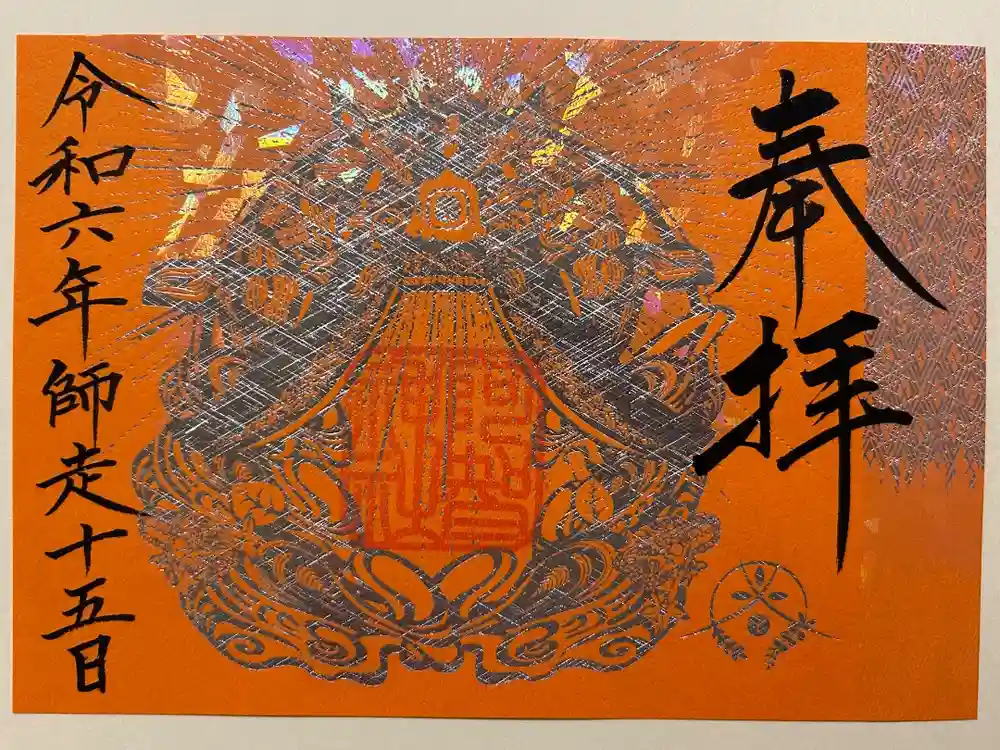 奉拝
令和六年師走十五日